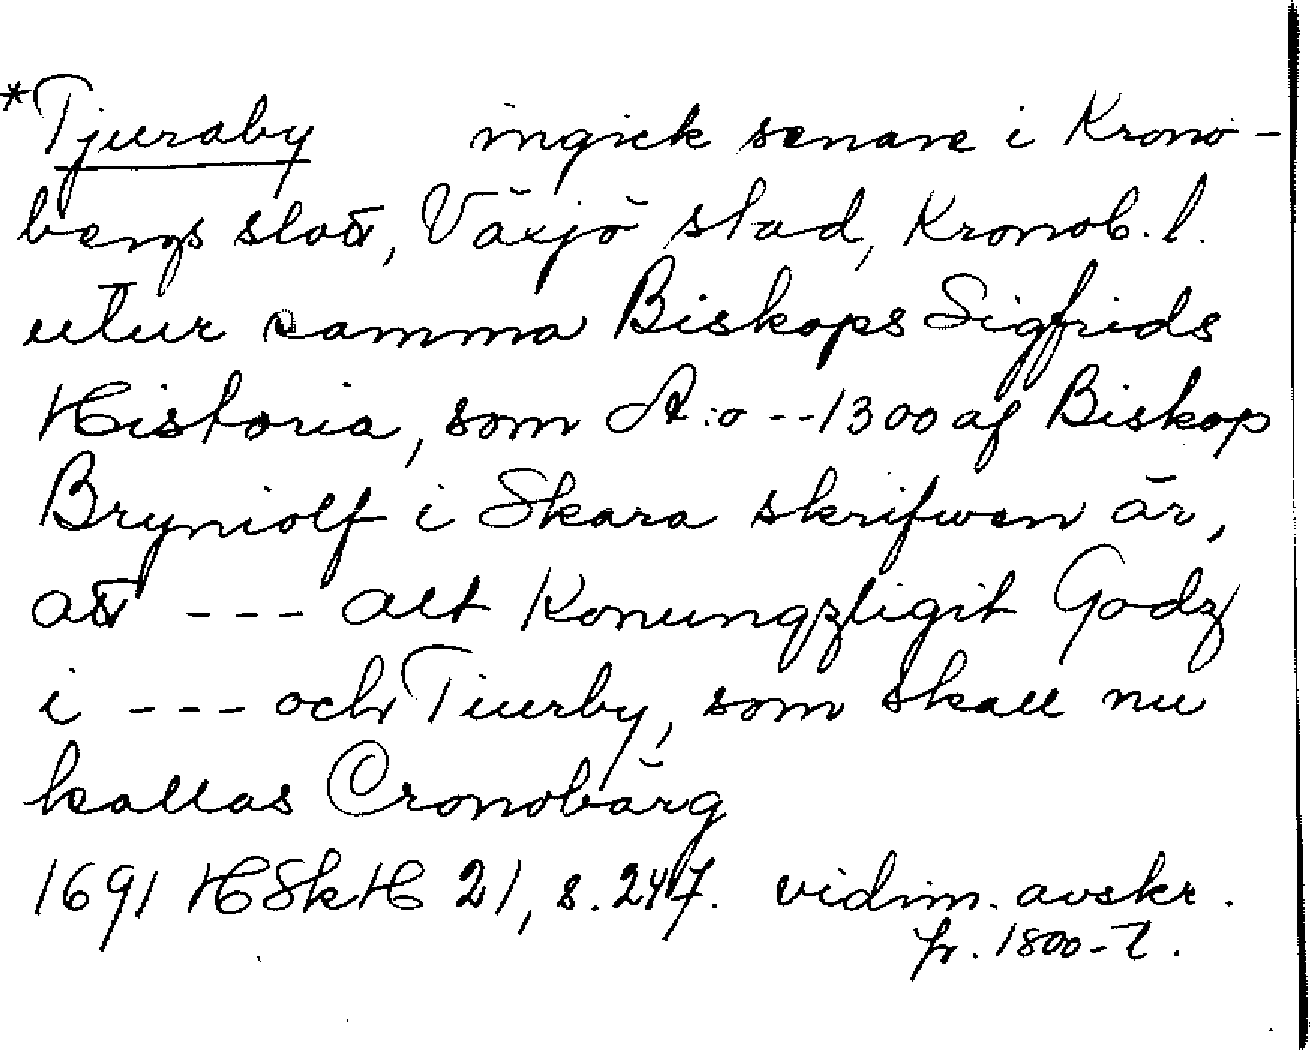 *Tjuraby ingick senare i Krono-
bergs slott, Växjö stad, Kronob. l.
utur samma Biskops Sigfrids
Historia, som A:o --1300 af Biskop
Bryniolf i Skara skrifwen är,
att --- alt Konungzligit Godz
i --- och Tiurby, som skall nu
kallas Cronobärg
1691 HSkH 21, s. 247. vidim. avskr.
fr. 1800-t.